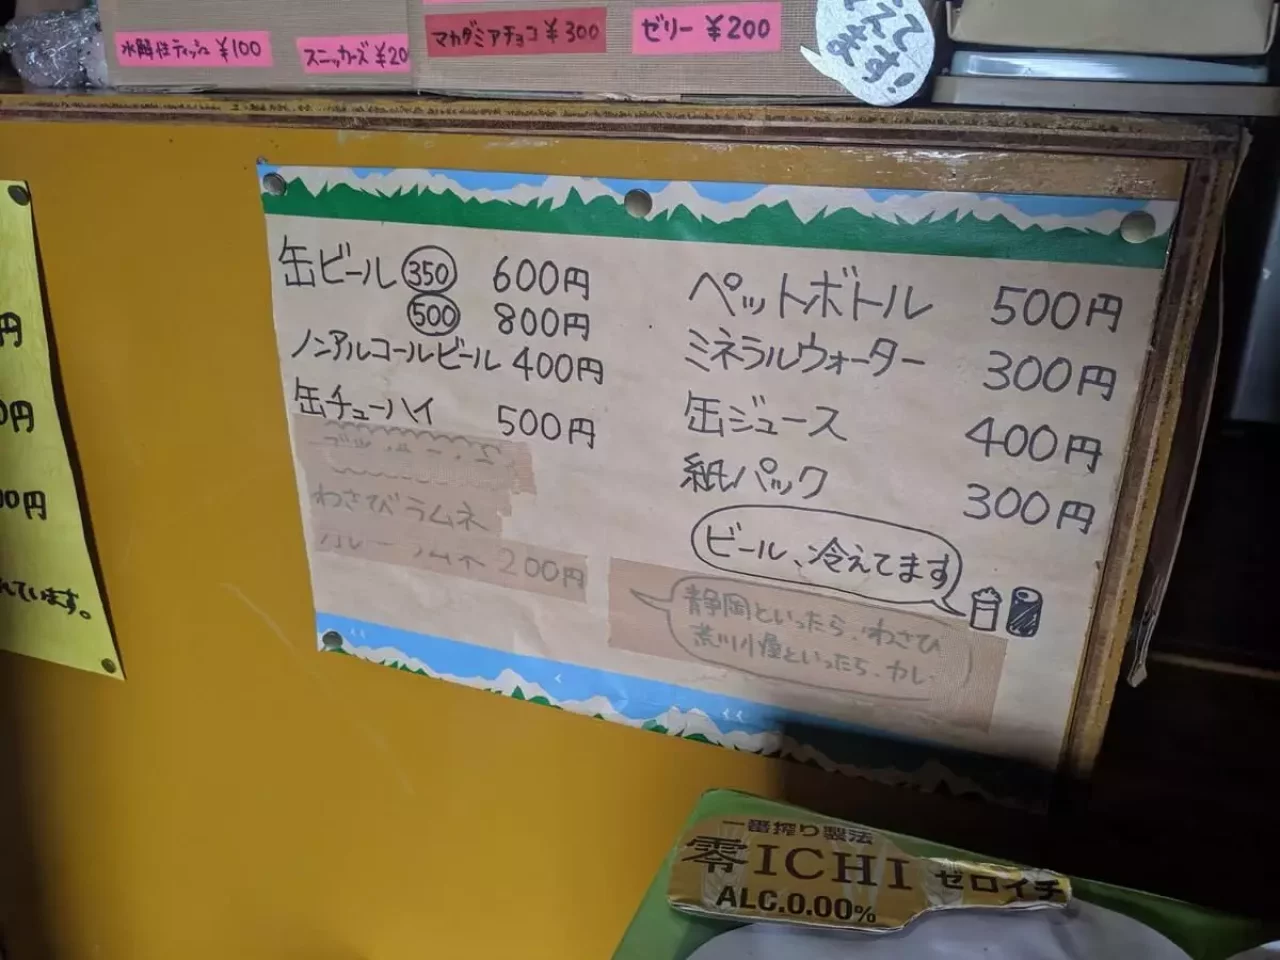 水解性ティッシュ ¥100
スニッカーズ ¥20
マカダミアチョコ ¥300
ゼリー ¥200
みえてます!
円
0円
00円
れています。
缶ビール 350 600円
500 800円
ノンアルコールビール 400円
缶チューハイ 500円
わさびラムネ
カレーラムネ 200円
ペットボトル 500円
ミネラルウォーター 300円
缶ジュース 400円
紙パック 300円
ビール、冷えてます
静岡といったら、わさび
荒川小屋といったら、カレー
一番搾り製法
零ICHI ゼロイチ
ALC.0.00%